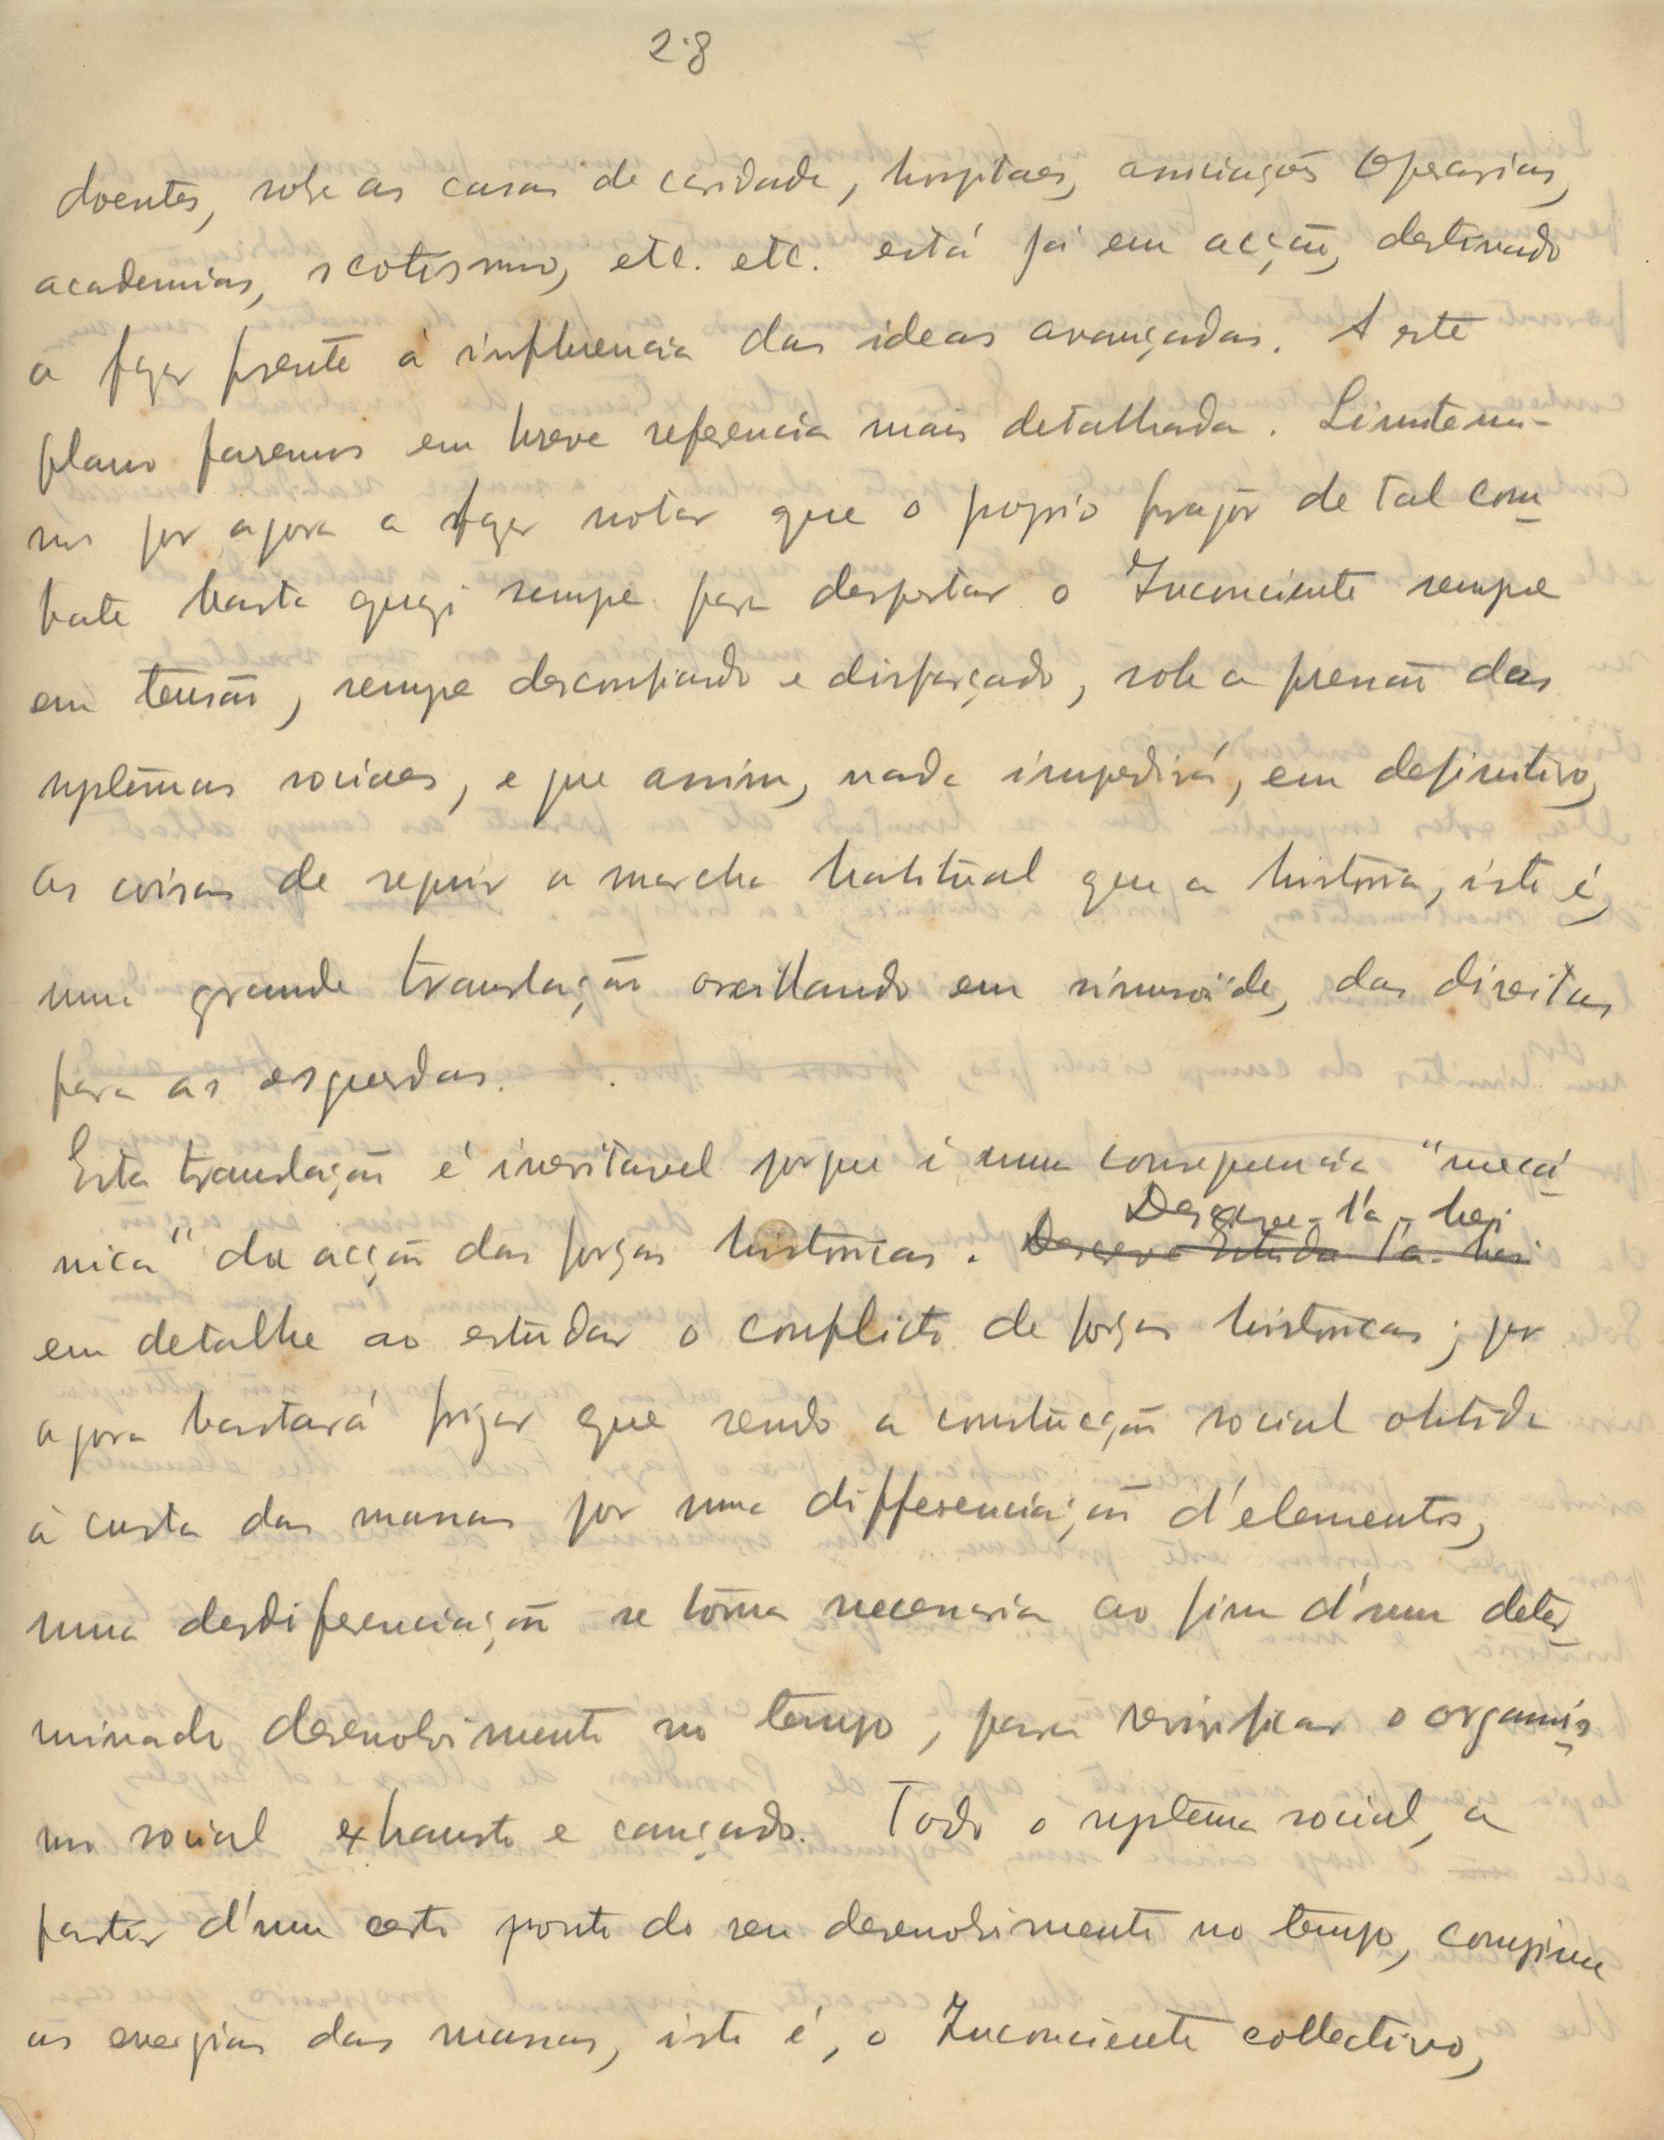 28
doentes, sobre as casas de caridade, hospitaes, associações Operarias,
academias, scotismo, etc. etc. está já em acção, destinado
a fazer frente á influencia das ideas avançadas. A este
plano faremos em breve referencia mais detalhada. Limitemo-
nos por agora a fazer notar que o proprio fragôr de tal com
bate basta quazi sempre para despertar o Inconciente sempre
em tensão, sempre desconfiado e disfarçado, sob a pressão dos
systemas sociaes, e que assim, nada impedirá, em definitivo,
as coisas de seguir a marcha habitual que a historia, isto é,
uma grande translação oscillando em sinusoide, das direitas
para as esquerdas.
Esta translação é inevitavel porque é uma consequencia "mecâ
nica" da acção das forças historicas.
Descreve-l'a-hei
em detalhe ao estudar o conflicto de forças historicas; por
agora bastará frizar que sendo a construcção social obtida
á custa das massas por uma differenciação d'elementos,
uma desdiferenciação se tórna necessaria ao fim d'um deter
minado desenvolvimento no tempo, para revivificar o organis
mo social exhausto e cançado. Todo o systema social, a
partir d'um certo ponto do seu desenvolvimento no tempo, comprime
as energias das massas, isto é, o Inconciente collectivo,